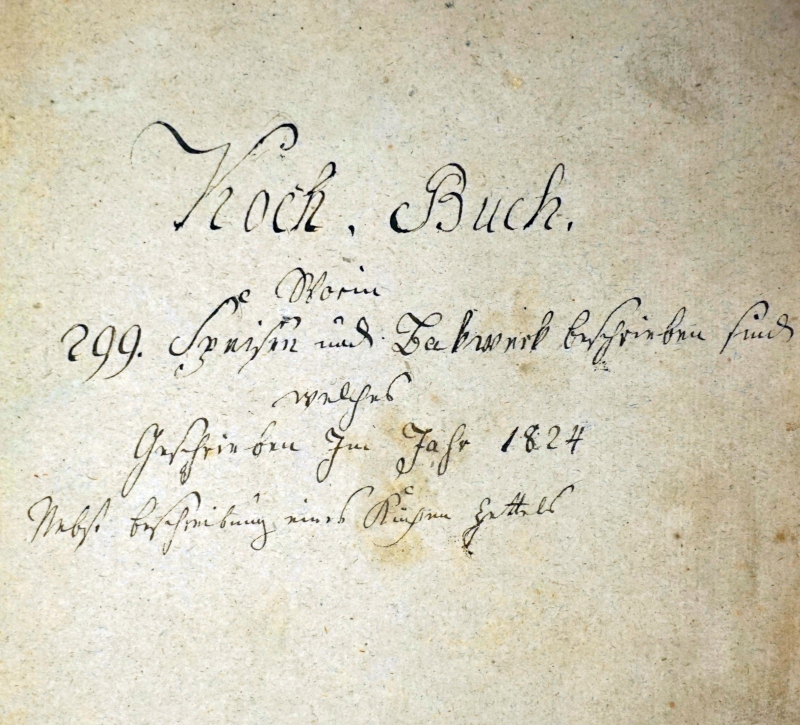 Koch. Buch.
Worin
299. Speisen und Bakwerk beschrieben sind
welches
Geschrieben Im Jahr 1824
Nebst beschreibung eines Küchen zettels